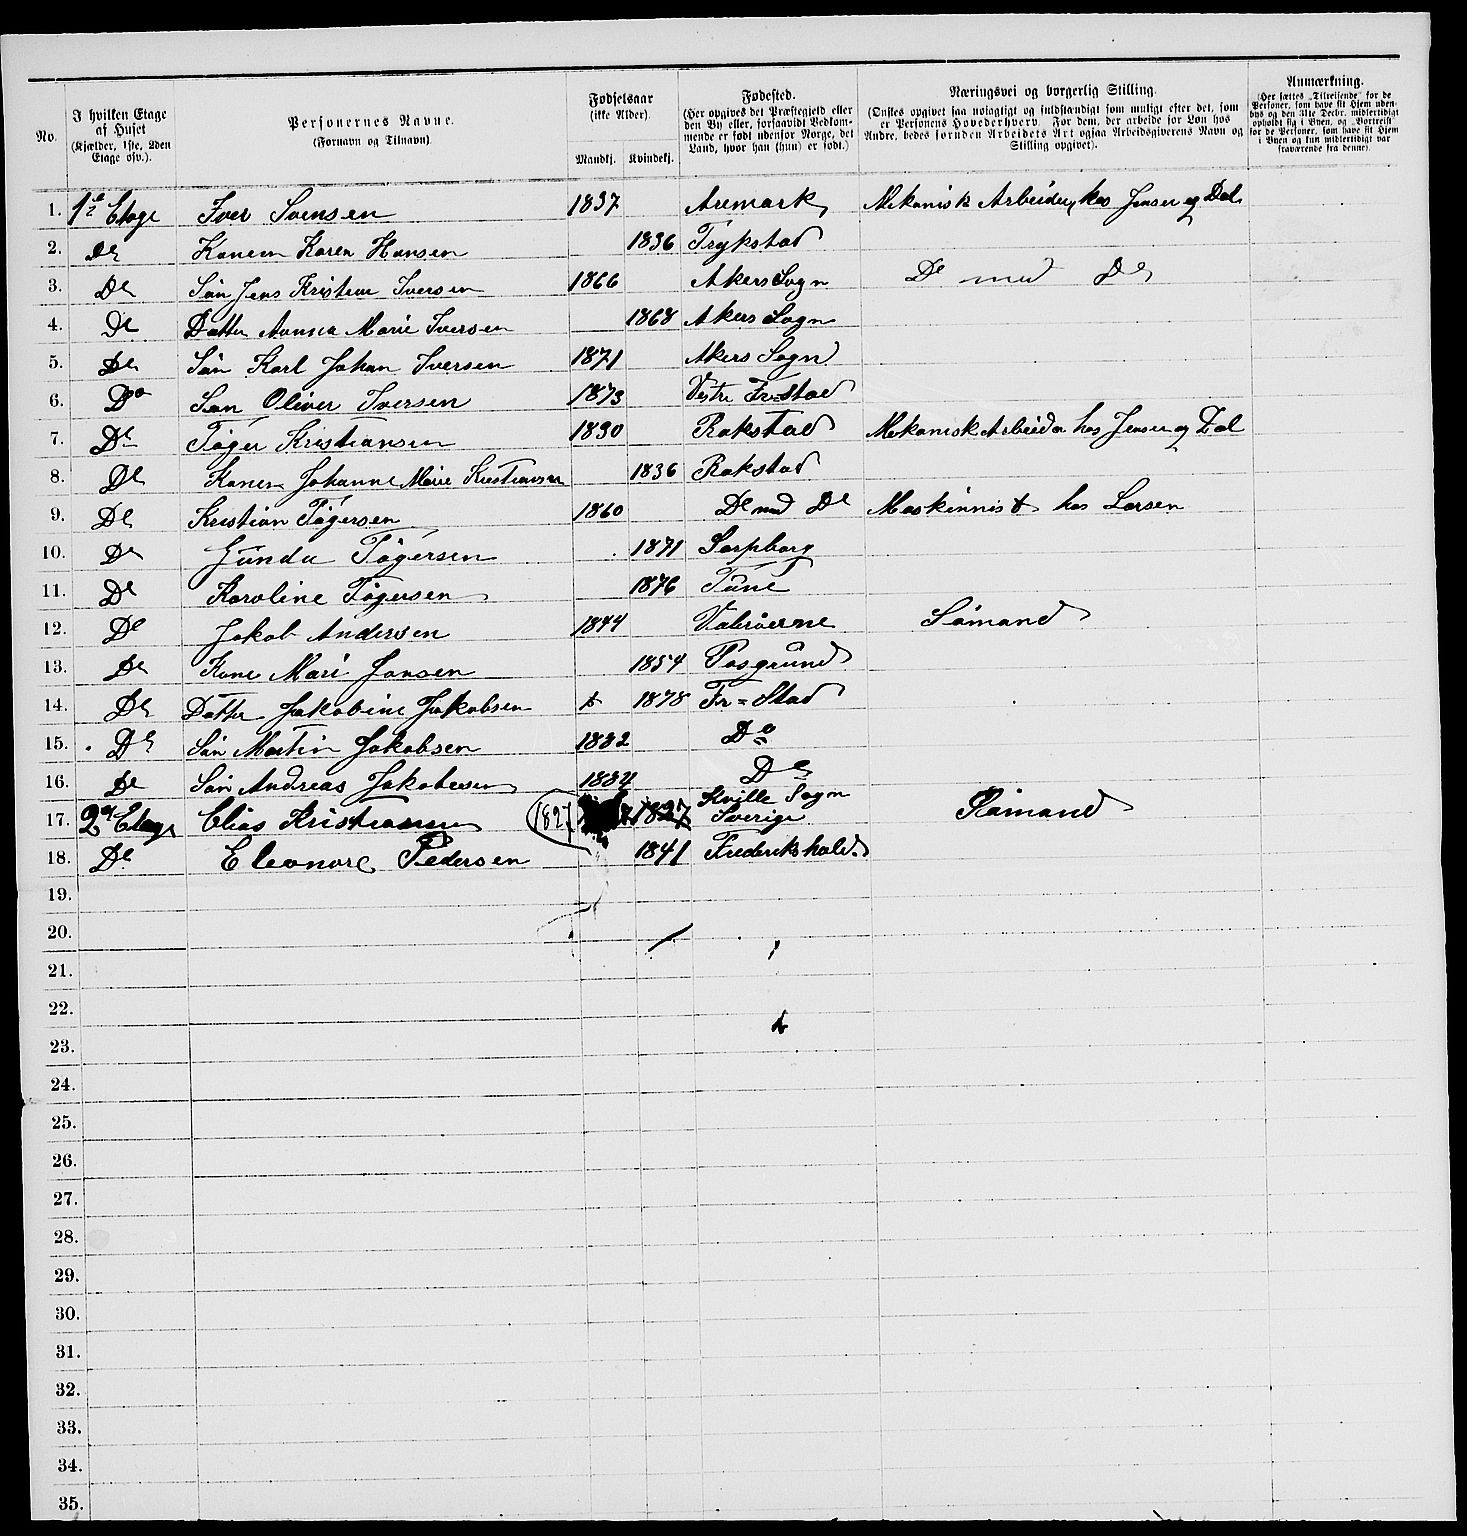 No. | I hvilken Etage af Huset (Kjælder, 1ste, 2den Etage osv.). | Personernes Navne. (Fornavn og Tilnavn). | Fødselsaar (ikke Alder). Mandkj. | Kvindekj. | Fødested. (Her opgives det Præstegjeld eller den By eller, forsaavidt Vedkommende er født udenfor Norge, det Land, hvor han (hun) er født.) | Næringsvei og borgerlig Stilling. (Ønskes opgivet saa nøiagtigt og fuldstændigt som muligt efter det, som er Personens Hovederhverv. For dem, der arbeide for Løn hos Andre, bedes foruden Arbeidets Art ogsaa Arbeidsgiverens Navn og Stilling opgivet). | Anmærkning. (Her sættes „Tilreisende" for de Personer, som have sit Hjem udenbys og den 31te Decbr. midlertidigt opholdt sig i Byen, og „Bortreist" for de Personer, som have sit Hjem i Byen og kun midlertidigt var fraværende fra denne).
1. 1e Etage Iver Svensen 1837 Aremark Mekanisk Arbeider hos Jensen og Dal
2. De Konen Karen Hansen 1836 Trykstad
3. De Søn Jens Kristian Iversen 1866 Akers Sogn De med De
4. De Datter Anna Marie Iversen 1868 Akers Sogn
5. De Søn Karl Johan Iversen 1871 Akers Sogn
6. Do Søn Oliver Iversen 1873 Vestre Fr=stad
7. De Tøger Kristiansen 1830 Rakstad Mekanisk Arbeider hos Jensen og Dal
8. De Konen Johanne Marie Kristiansen 1836 Rakstad
9. De Kristian Tøgersen 1860 De med De Maskinnist hos Larsen
10. De Gunda Tøgersen 1871 Sarpborg
11. De Karoline Tøgersen 1876 Tune
12. De Jakob Andersen 1844 Valøerne Sømand
13. De Kone Mari Jansen 1854 Posgrund
14. De Datter Jakobine Jakobsen 1878 Fr=Stad
15. De Søn Martin Jakobsen 1882 Do
16. De Søn Andreas Jakobsen 1884 De
17. 2den Etage Elias Kristiansen 1827 1827 Kville Sogn Sverige Sømand
18. De Eleonore Pedersen 1841 Frederikshald
19.
20.
21.
22.
23.
24.
25.
26.
27.
28.
29.
30.
31.
32.
33.
34.
35.